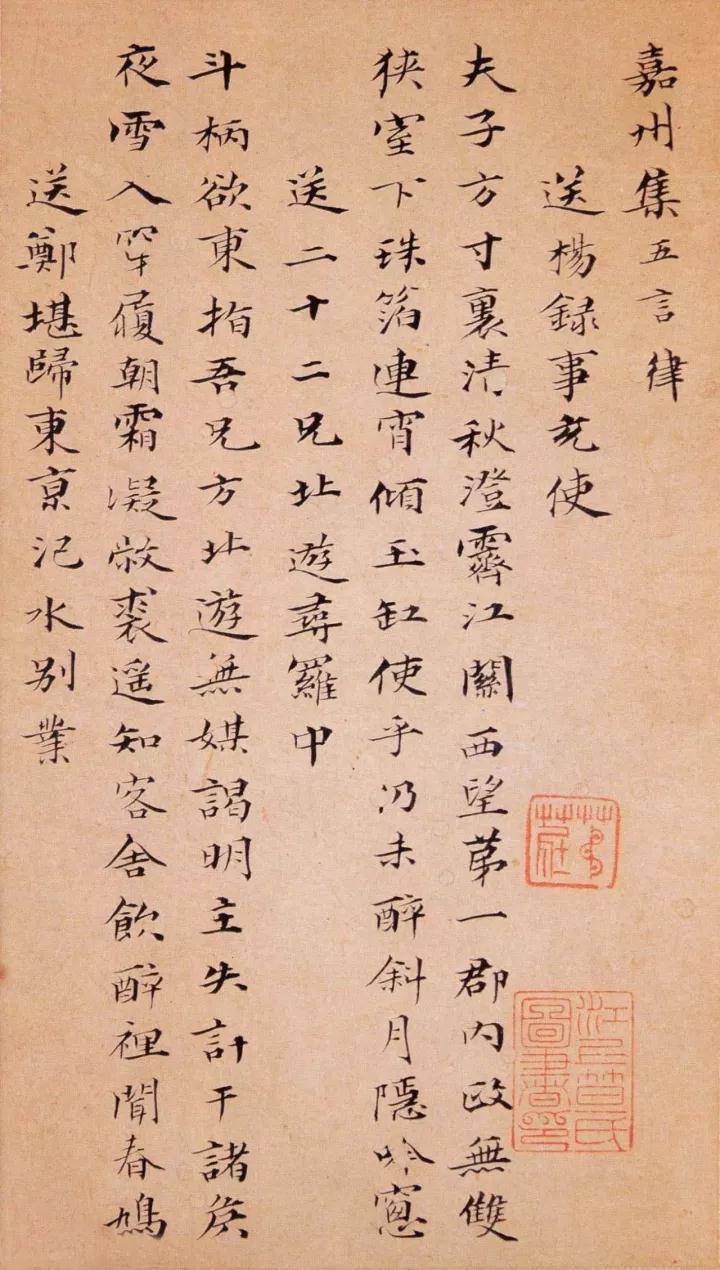 嘉州集五言律
送楊録事充使
夫子方寸裏清秋澄霽江關西望第一郡内政無雙
狹室下珠箔連宵傾玉缸使乎仍未醉斜月隱吟窻
送二十二兄北遊尋羅中
斗柄欲東指吾兄方北遊無媒謁明主失計干諸侯
夜雪入穿履朝霜凝敝裘遥知客舍飲醉裡聞春鳩
送鄭堪歸東京汜水别業